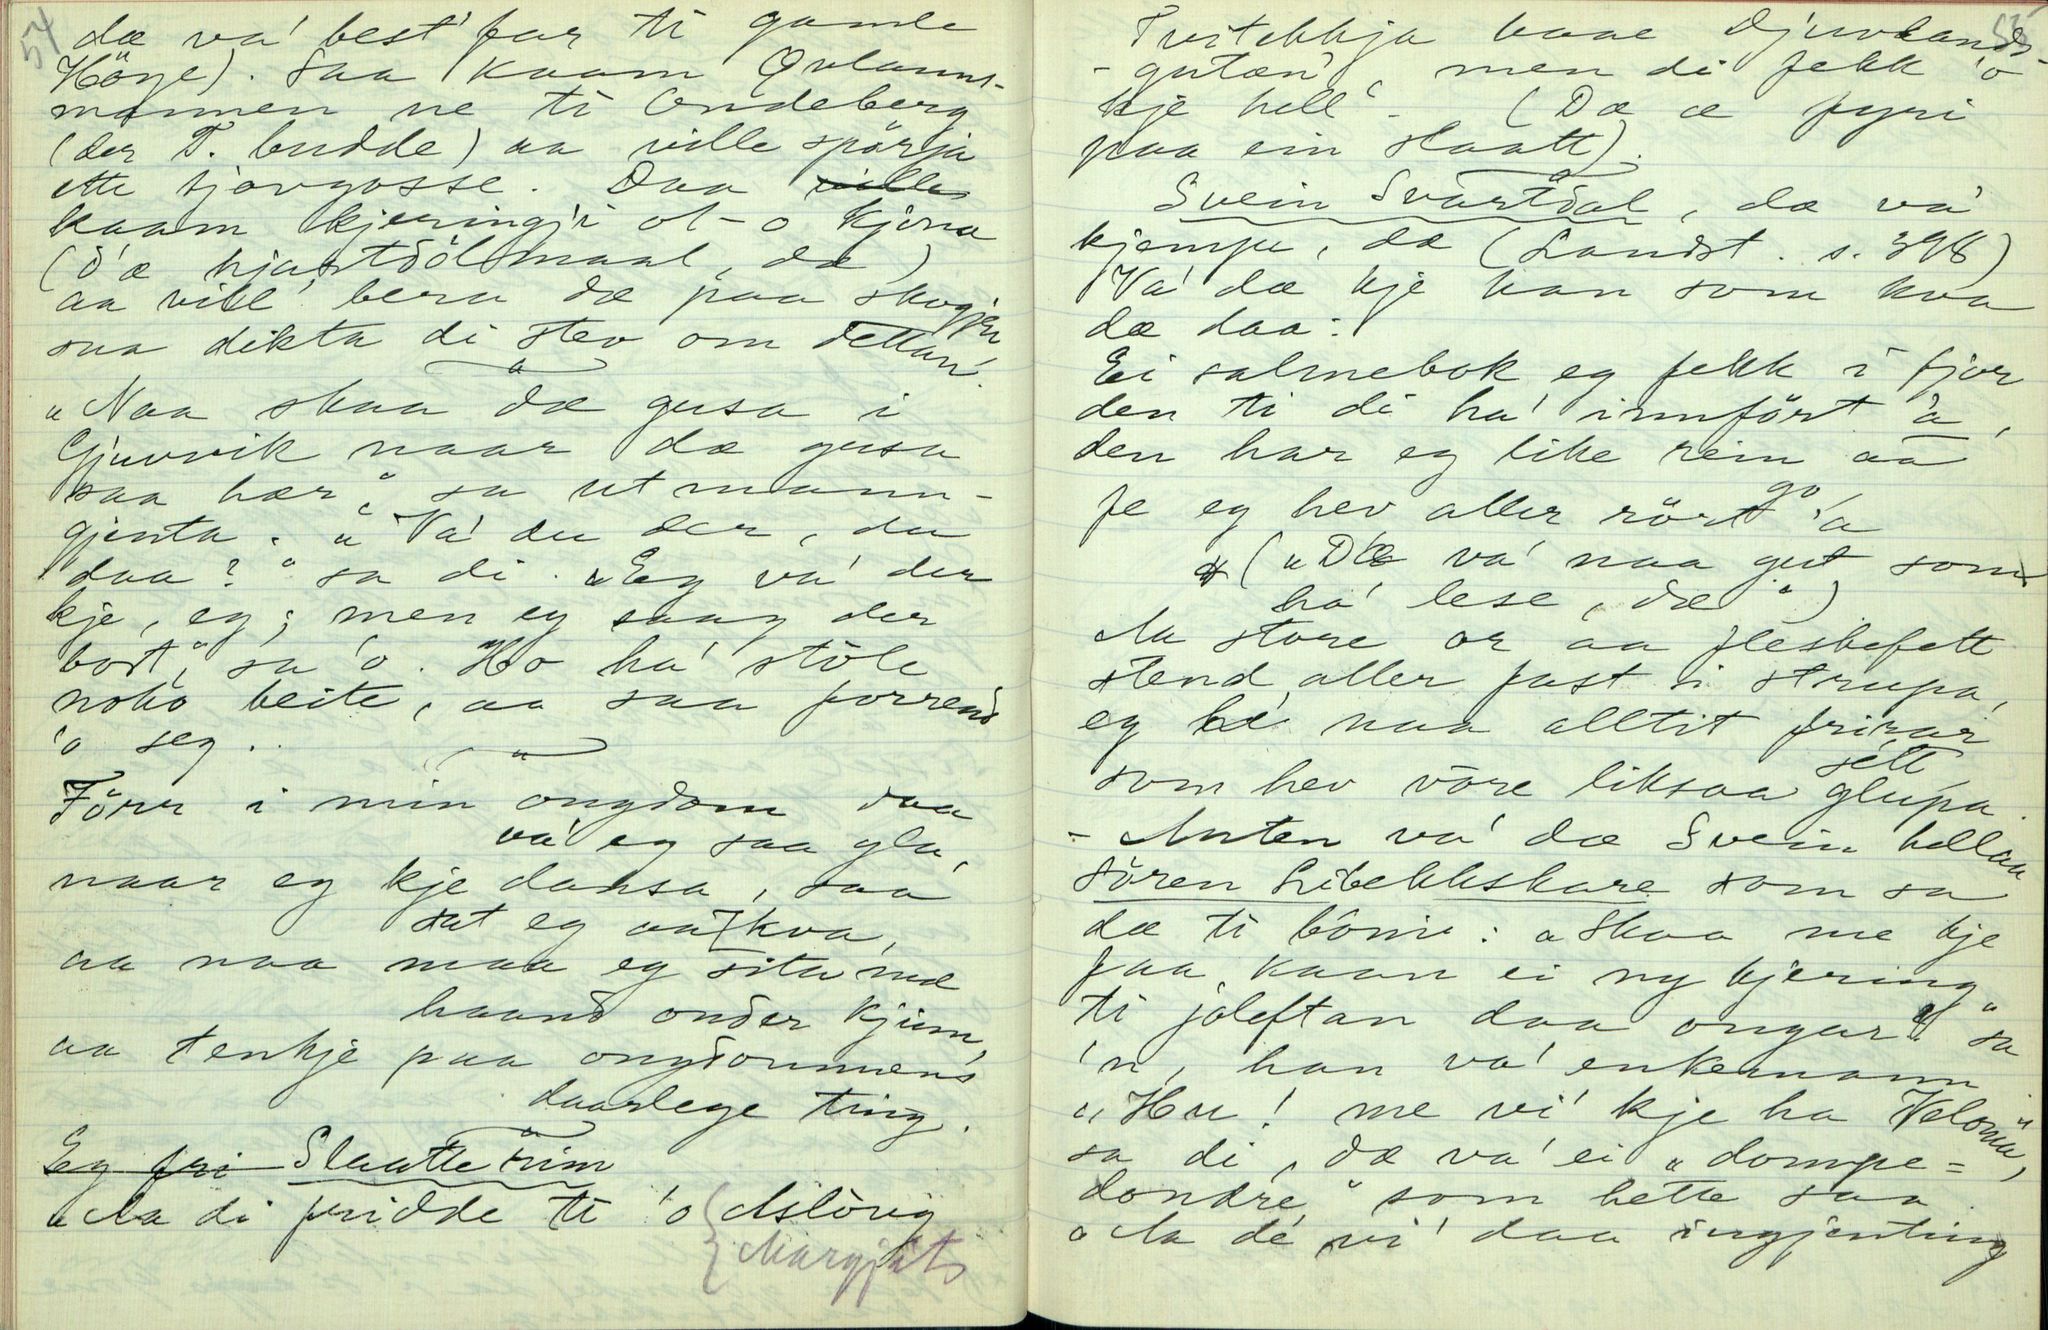 54
dæ va' best' far ti gamle
Höye). Saa kaam Qvlanns-
mannen ne ti Ondeberg
(der T. budde) aa ville spörja
ette tjovgosse. Daa ville
kaam kjeringji ot - o Kjöna
(d'æ hjartdölsmaal, dæ)
aa vill' bera dæ paa skogjen
saa dikta di stev om dettan'.
"Naa skaa dæ gusa i
Gjuvvik naar dæ gusa
saa hær", sa utmann-
gjenta. "Va' du der, du
daa?" sa di. "Eg va' der
kje, eg; men eg saag der
bort," sa 'o. Ho ha' stöle
noko beite, aa saa forrend
'o seg.
Förr i min ongdom daa
va' eg saa gla',
naar eg kje dansa, saa
sat eg aa kva,
aa naa maa eg sita me
haand onder kjinn,
aa tenkje paa ongdommens
daarlege ting.
Eg fri Slaatterim
"Aa di fridde ti 'o Aslöug
Margjit
55
Tvitekkja baae Djuvlands-
-gutæn', men di fekk 'o
kje hell". (Dæ æ fyri
paa ein slaatt).
Svein Svartdal, dæ va'
kjempe, dæ (Landst. s. 398)
Va' dæ kje han som kva
dæ daa:
Ei salmebok eg fekk i fjor
den ti di ha' innfört 'a,
den har eg like rein aa
go
fe eg hev aller rört 'a
("D'æ va' naa gut som
ha' lese, dæ")
Aa store or aa fleskefett
stend aller fast i strupa,
eg hé naa alltit friar
sétt
som hev vöre liksaa glupa.
- Anten va' dæ Svein hellaa
Sören Libekkskare som sa
dæ ti bönni: "Skaa me kje
faa kaan ei ny kjering
ti joleftan daa ongar!" sa
'n, han va' enkemann
"Hu! me vi' kje ha Veloma",
sa di, dæ va' ei "dompe=
dondre" som hette saa.
"Aa dé vi' daa ingjenting